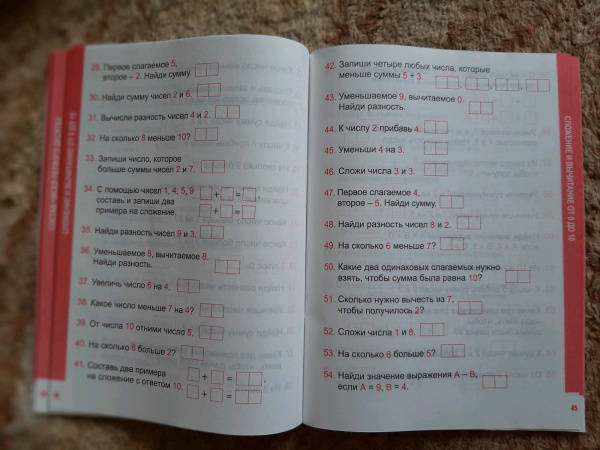 29. Первое слагаемое 5,
второе – 2. Найди сумму.
30. Найди сумму чисел 2 и 6.
31. Вычисли разность чисел 4 и 2.
32. На сколько 8 меньше 10?
33. Запиши число, которое
больше суммы чисел 2 и 7.
34. С помощью чисел 1, 4, 5, 9
составь и запиши два
примера на сложение.
+ = ,
+ = .
35. Найди разность чисел 9 и 3.
36. Уменьшаемое 8, вычитаемое 8.
Найди разность.
37. Увеличь число 6 на 4.
38. Какое число меньше 7 на 4?
39. От числа 10 отними число 5.
40. На сколько 6 больше 2?
41. Составь два примера
на сложение с ответом 10.
+ = ,
+ = .
СЛОЖЕНИЕ И ВЫЧИТАНИЕ ОТ 0 ДО 10
42. Запиши четыре любых числа, которые
меньше суммы 5 + 3.
43. Уменьшаемое 9, вычитаемое 0.
Найди разность.
44. К числу 2 прибавь 4.
45. Уменьши 4 на 3.
46. Сложи числа 3 и 3.
47. Первое слагаемое 4,
второе – 5. Найди сумму.
48. Найди разность чисел 8 и 2.
49. На сколько 6 меньше 7?
50. Какие два одинаковых слагаемых нужно
взять, чтобы сумма была равна 10?
51. Сколько нужно вычесть из 7,
чтобы получилось 2?
52. Сложи числа 1 и 8.
53. На сколько 6 больше 5?
54. Найди значение выражения А – В,
если А = 9, В = 4.
СЛОЖЕНИЕ И ВЫЧИТАНИЕ ОТ 0 ДО 10
45